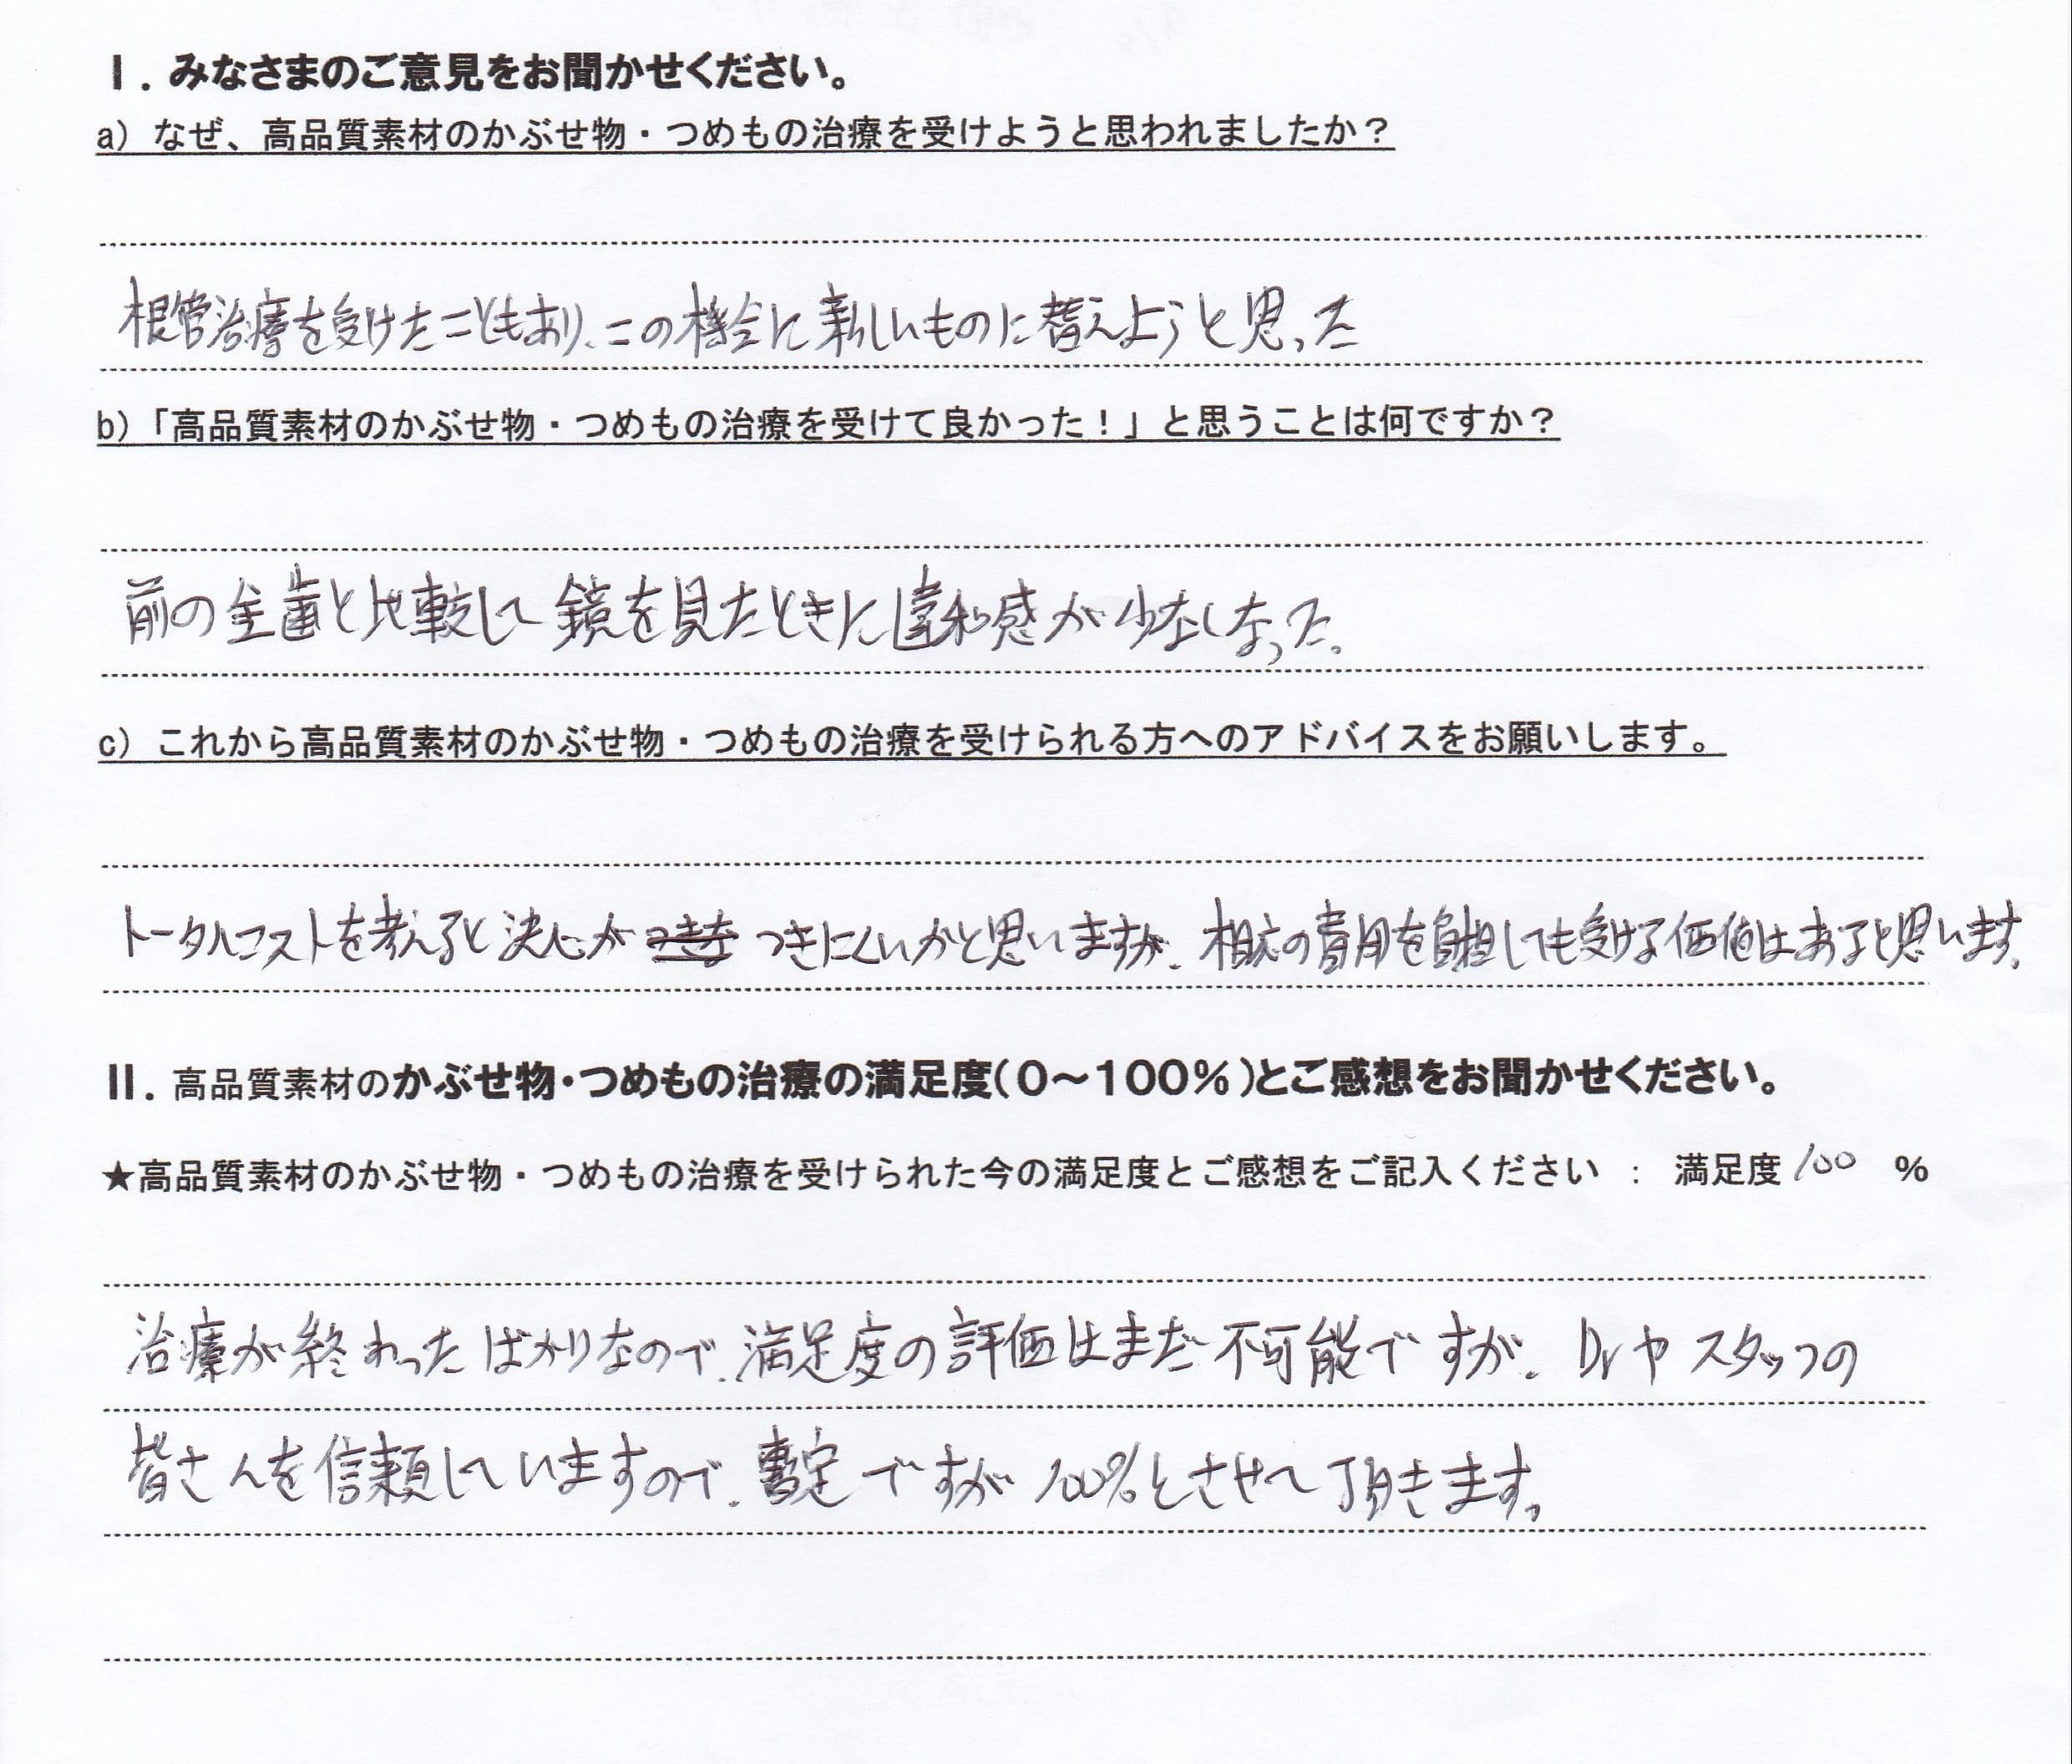 I. みなさまのご意見をお聞かせください。
a) なぜ、高品質素材のかぶせ物・つめもの治療を受けようと思われましたか？
根管治療を受けたこともあり、この機会に新しいものに替えようと思った
b)「高品質素材のかぶせ物・つめもの治療を受けて良かった！」と思うことは何ですか？
前の金歯と比較して鏡を見たときに違和感が少なくなった。
c) これから高品質素材のかぶせ物・つめもの治療を受けられる方へのアドバイスをお願いします。
トータルコストを考えると決心がつきにくいかと思いますが、相応の費用を負担しても受ける価値はあると思います。
II. 高品質素材のかぶせ物・つめもの治療の満足度(0～100％)とご感想をお聞かせください。
★高品質素材のかぶせ物・つめもの治療を受けられた今の満足度とご感想をご記入ください ： 満足度 100 %
治療が終わったばかりなので、満足度の評価はまだ不可能ですが、Drやスタッフの
皆さんを信頼していますので、暫定ですが100%とさせて頂きます。